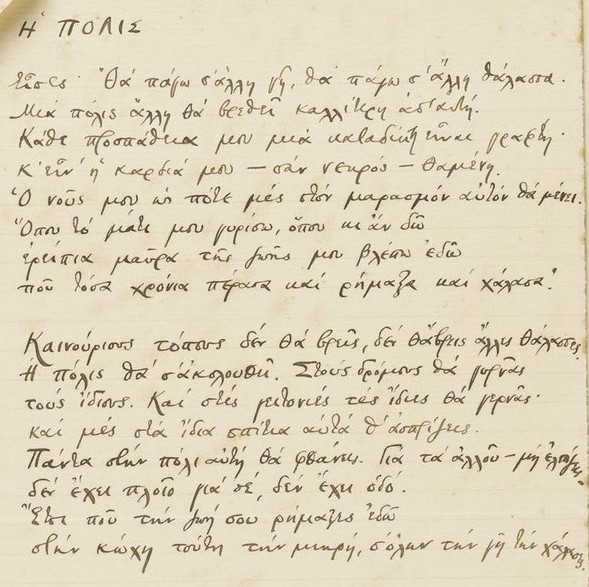 Η ΠΟΛΙΣ
Εἶπες· "Θὰ πάγω σ' ἄλλη γῆ, θὰ πάγω σ' ἄλλη θάλασσα.
Μιὰ πόλις ἄλλη θὰ βρεθεῖ καλλίτερη ἀπ' αὐτή.
Κάθε προσπάθεια μου μιὰ καταδίκη εἶναι γραφτή·
κ' εἶν' ἡ καρδιά μου — σὰν νεκρός — θαμένη.
Ὁ νοῦς μου ὡς πότε μὲς στὸν μαρασμὸν αὐτὸν θὰ μένει.
Ὅπου τὸ μάτι μου γυρίσω, ὅπου κι ἂν δῶ
ἐρείπια μαῦρα τῆς ζωῆς μου βλέπω ἐδῶ
ποὺ τόσα χρόνια πέρασα καὶ ρήμαξα καὶ χάλασα."
Καινούριους τόπους δὲν θὰ βρεῖς, δὲν θἄβρεις ἄλλες θάλασσες.
Ἡ πόλις θὰ σὲ ἀκολουθεῖ. Στοὺς δρόμους θὰ γυρνᾶς
τοὺς ἴδιους. Καὶ στὲς γειτονιὲς τὲς ἴδιες θὰ γερνᾶς·
καὶ μὲς στὰ ἴδια σπίτια αὐτὰ θ' ἀσπρίζεις.
Πάντα στὴν πόλι αὐτὴ θὰ φθάνεις. Γιὰ τὰ ἀλλοῦ — μὴ ἐλπίζεις —
δὲν ἔχει πλοῖο γιὰ σέ, δὲν ἔχει ὁδό.
Ἔτσι ποὺ τὴν ζωή σου ρήμαξες ἐδῶ
στὴν κώχη τούτη τὴν μικρή, σ' ὅλην τὴν γῆ τὴν χάλασες.